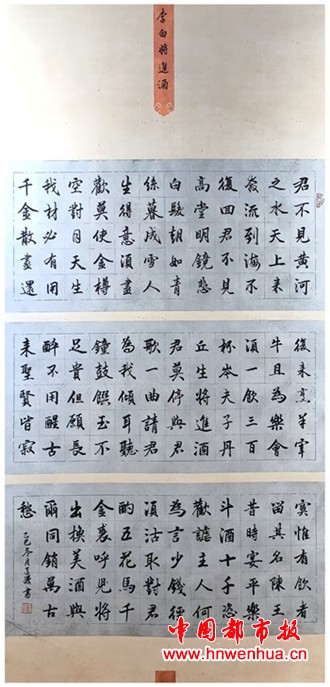 李白將進酒
君不見黃河
之水天上来
奔流到海不
復回君不見
高堂明鏡悲
白髮朝如青
絲暮成雪人
生得意須盡
歡莫使金樽
空對月天生
我材必有用
千金散盡還
復来烹羊宰
牛且為樂會
須一飲三百
杯岑夫子丹
丘生將進酒
君莫停與君
歌一曲請君
為我傾耳聽
鐘鼓饌玉不
足貴但願長
醉不用醒古
来聖賢皆寂
寞惟有飲者
留其名陳王
昔時宴平樂
斗酒十千恣
歡謔主人何
為言少錢徑
須沽取對君
酌五花馬千
金裘呼兒將
出換美酒與
爾同銷萬古
愁
中国都市报
www.hnwenhua.com.cn